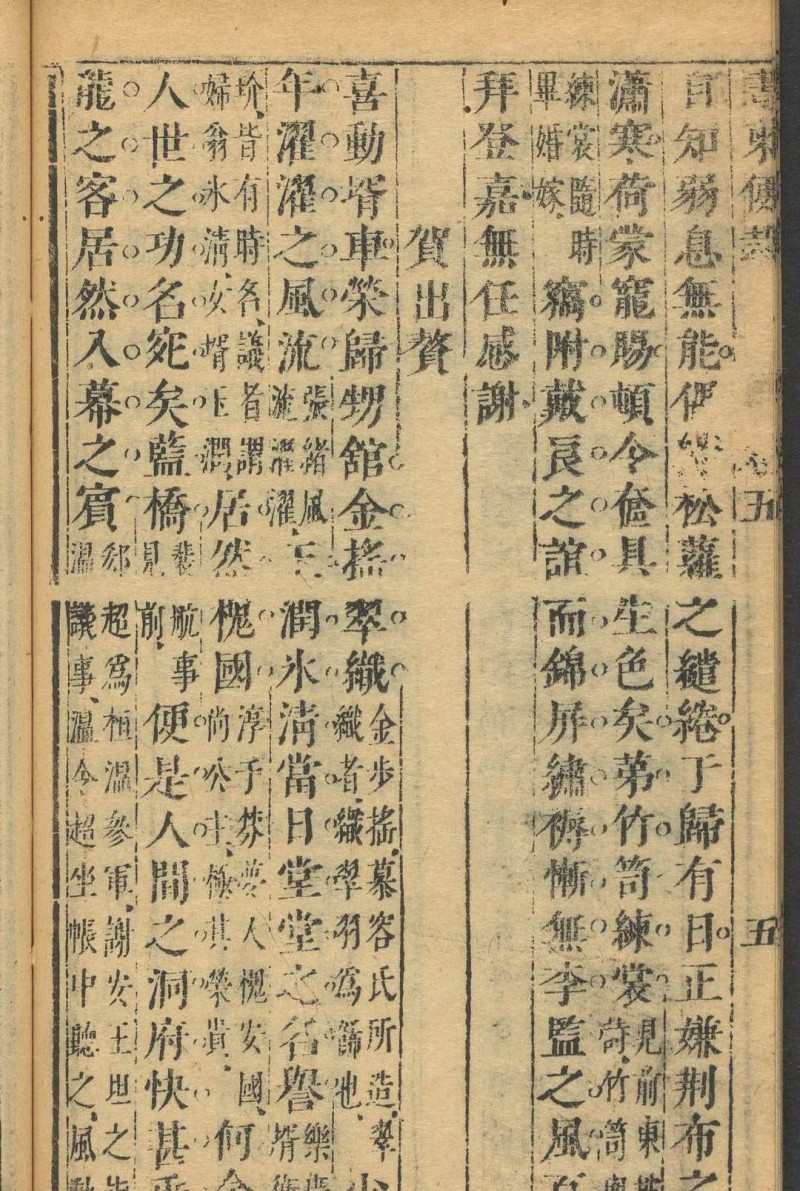 五 五
自知弱息無能 松蘿之繾綣于歸有日正嫌荆布之
瀟寒荷蒙寵賜頓令奩具生色矣弟竹笥練裳見前東詩竹笥
練裳隨時畢婚嫁竊附戴良之誼而錦屏繡褥慚無李監之風
拜登嘉無任感謝
賀出贅
喜動壻車榮歸甥舘金搖翠織金步搖慕容氏所造翠織者織翠羽爲飾也少
年濯濯之風流張緒風流濯濯玉潤氷清當日堂堂之名譽樂廣壻衛
玠皆有時名議者謂婦翁氷清女壻玉潤居然槐國淳于棼夢入槐安國尚公主極其榮貴何
人世之功名宛矣藍橋裴航事見前便是人間之洞府快甚
龍之客居然入幕之賓郄超爲桓溫參軍謝安王坦之溫議事溫令超坐帳中聽之風